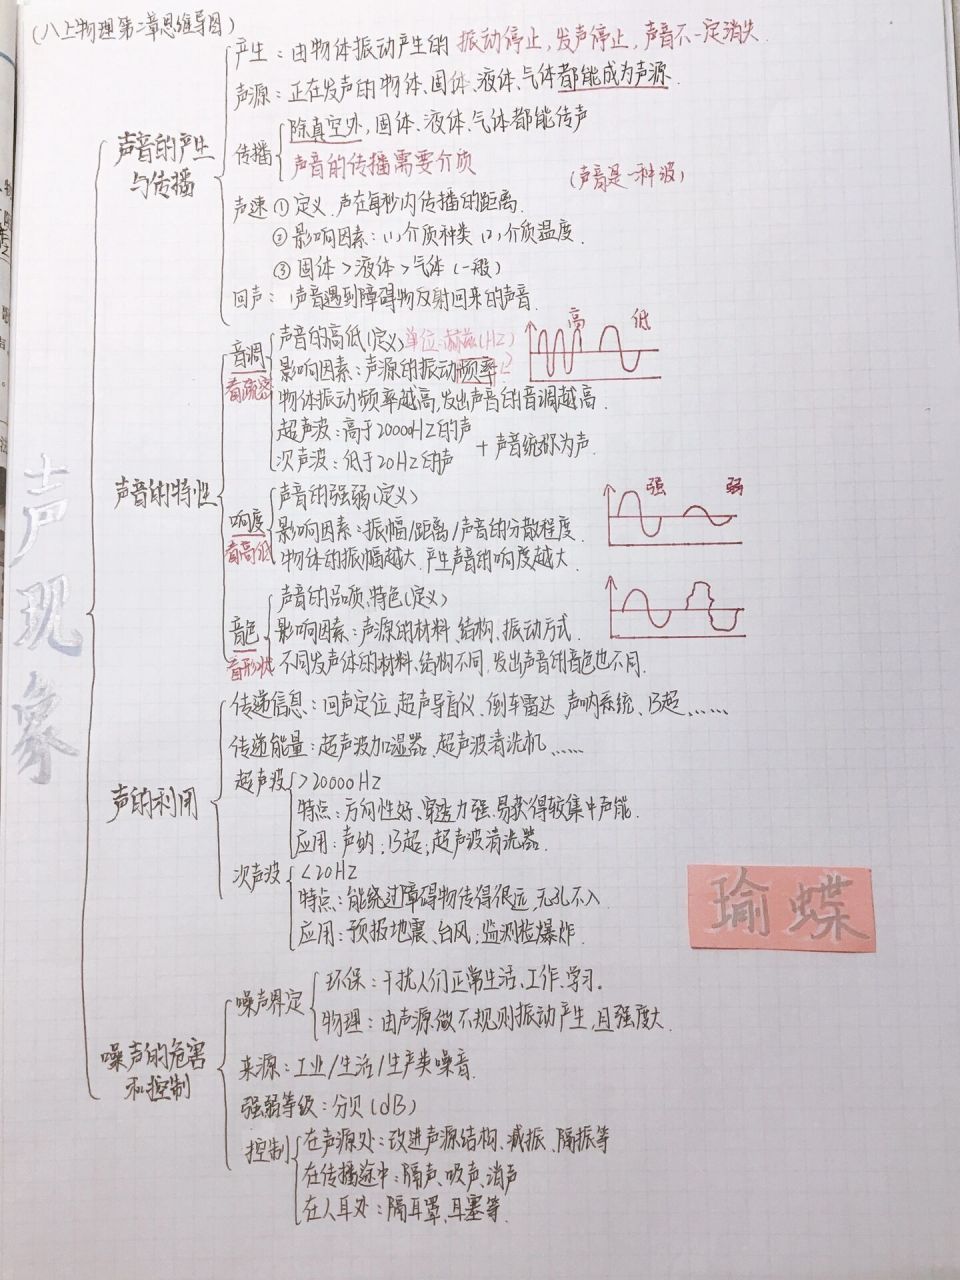 (八上物理第二章思维导图)
声现象
声音的产生
与传播
产生：由物体振动产生的 振动停止，发声停止，声音不一定消失.
声源：正在发声的物体、固体、液体、气体都能成为声源.
传播
除真空外，固体、液体、气体都能传声
声音的传播需要介质
(声音是一种波)
声速 ① 定义. 声在每秒内传播的距离.
② 影响因素：(1)介质种类 (2)介质温度.
③ 固体＞液体＞气体 (一般)
回声：声音遇到障碍物反射回来的声音.
声音的特性
音调
看疏密
声音的高低(定义) 单位：赫兹(HZ)
影响因素：声源的振动频率
物体振动频率越高，发出声音的音调越高.
超声波：高于20000HZ的声
次声波：低于20HZ的声
+ 声音统称为声.
高 低
响度
看高低
声音的强弱(定义)
影响因素：振幅/距离/声音的分散程度.
物体的振幅越大. 产生声音的响度越大.
强 弱
音色
看形状
声音的品质、特色(定义)
影响因素：声源的材料、结构、振动方式.
不同发声体的材料、结构不同，发出声音的音色也不同.
声的利用
传递信息：回声定位、超声导盲仪、倒车雷达、声呐系统、B超……
传递能量：超声波加湿器、超声波清洗机……
超声波
>20000HZ
特点：方向性好、穿透力强、易获得较集中声能.
应用：声纳；B超；超声波清洗器.
次声波
<20HZ
特点：能绕过障碍物传得很远，无孔不入
应用：预报地震、台风；监测核爆炸.
瑜蝶
噪声的危害
和控制
噪声界定
环保：干扰人们正常生活、工作、学习.
物理：由声源做不规则振动产生，且强度大.
来源：工业/生活/生产类噪音.
强弱等级：分贝(dB)
控制
在声源处：改进声源结构、减振、隔振等
在传播途中：隔声、吸声、消声
在人耳处：隔耳罩、耳塞等.